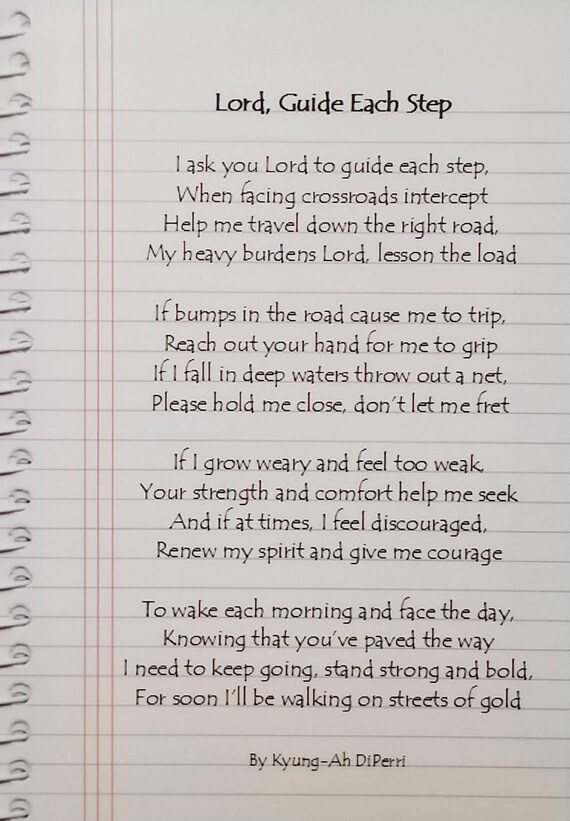 Lord, Guide Each Step
I ask you Lord to guide each step,
When facing crossroads intercept
Help me travel down the right road,
My heavy burdens Lord, lesson the load
If bumps in the road cause me to trip,
Reach out your hand for me to grip
If I fall in deep waters throw out a net,
Please hold me close, don't let me fret
If I grow weary and feel too weak,
Your strength and comfort help me seek
And if at times, I feel discouraged,
Renew my spirit and give me courage
To wake each morning and face the day,
Knowing that you've paved the way
I need to keep going, stand strong and bold,
For soon I'll be walking on streets of gold
By Kyung-Ah DiPerri